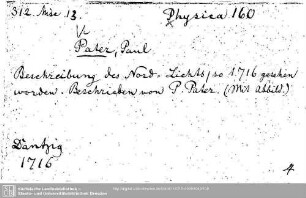 312. Misc 13.
Physica 160
Pater, Paul
Beschreibung des Nord-Lichts / so 1716 gesehen
worden. Beschrieben von P. Pater. (Mit Abbild.)
Dantzig
1716
4
Sächsische Landesbibliothek -
Staats- und Universitätsbibliothek Dresden